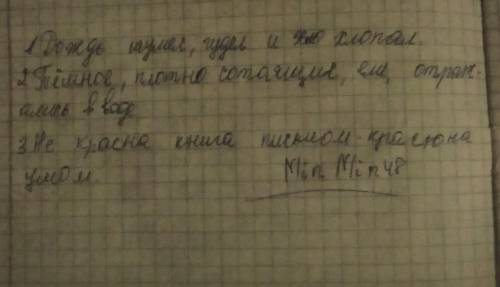 1 Дождь шумел, гудел и хлопал.
2 Тёмное, плотно сотаящие, еле, отраж-
ались в воде
3 Не красна книга письмом-красона
умом. Min Min48